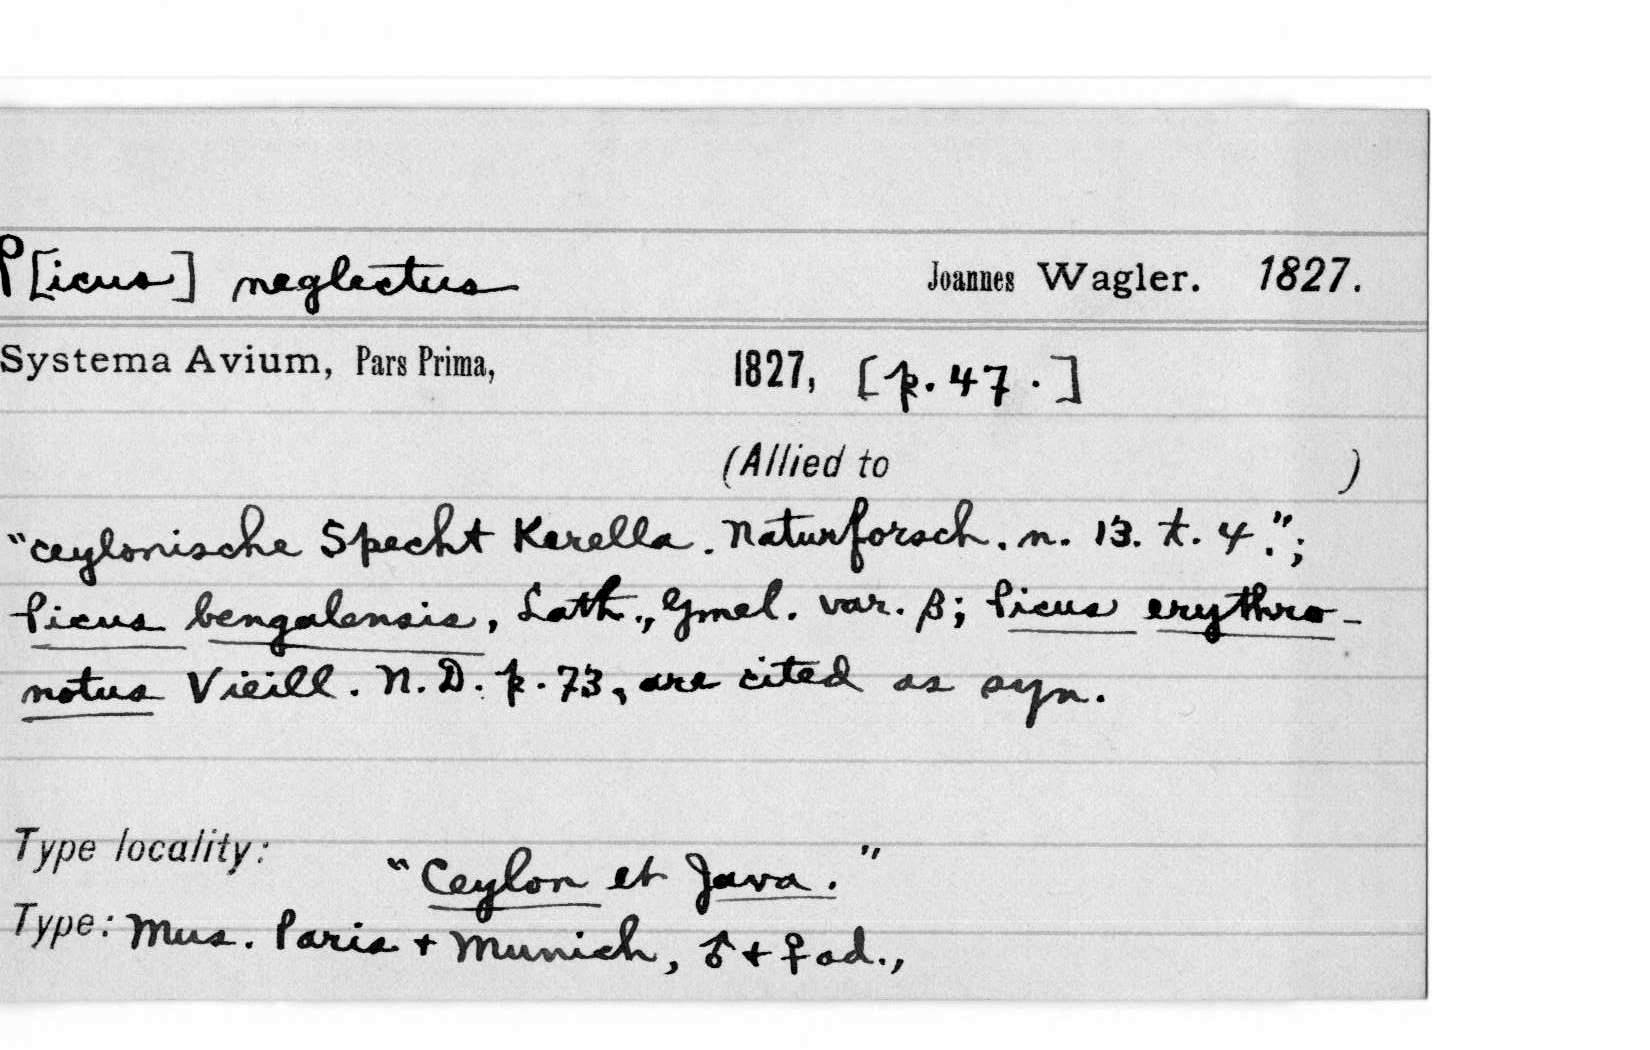 P[icus] neglectus Joannes Wagler. 1827.
Systema Avium, Pars Prima, 1827, [p. 47.]
(Allied to )
"ceylonische Specht Kerella. Naturforsch. n. 13. t. 4.";
Picus bengalensis, Lath., Gmel. var. β; Picus erythro-
notus Vieill. N. D. p. 73, are cited as syn.
Type locality: "Ceylon et Java."
Type: Mus. Paris + Munich, ♂ + ♀ ad.,